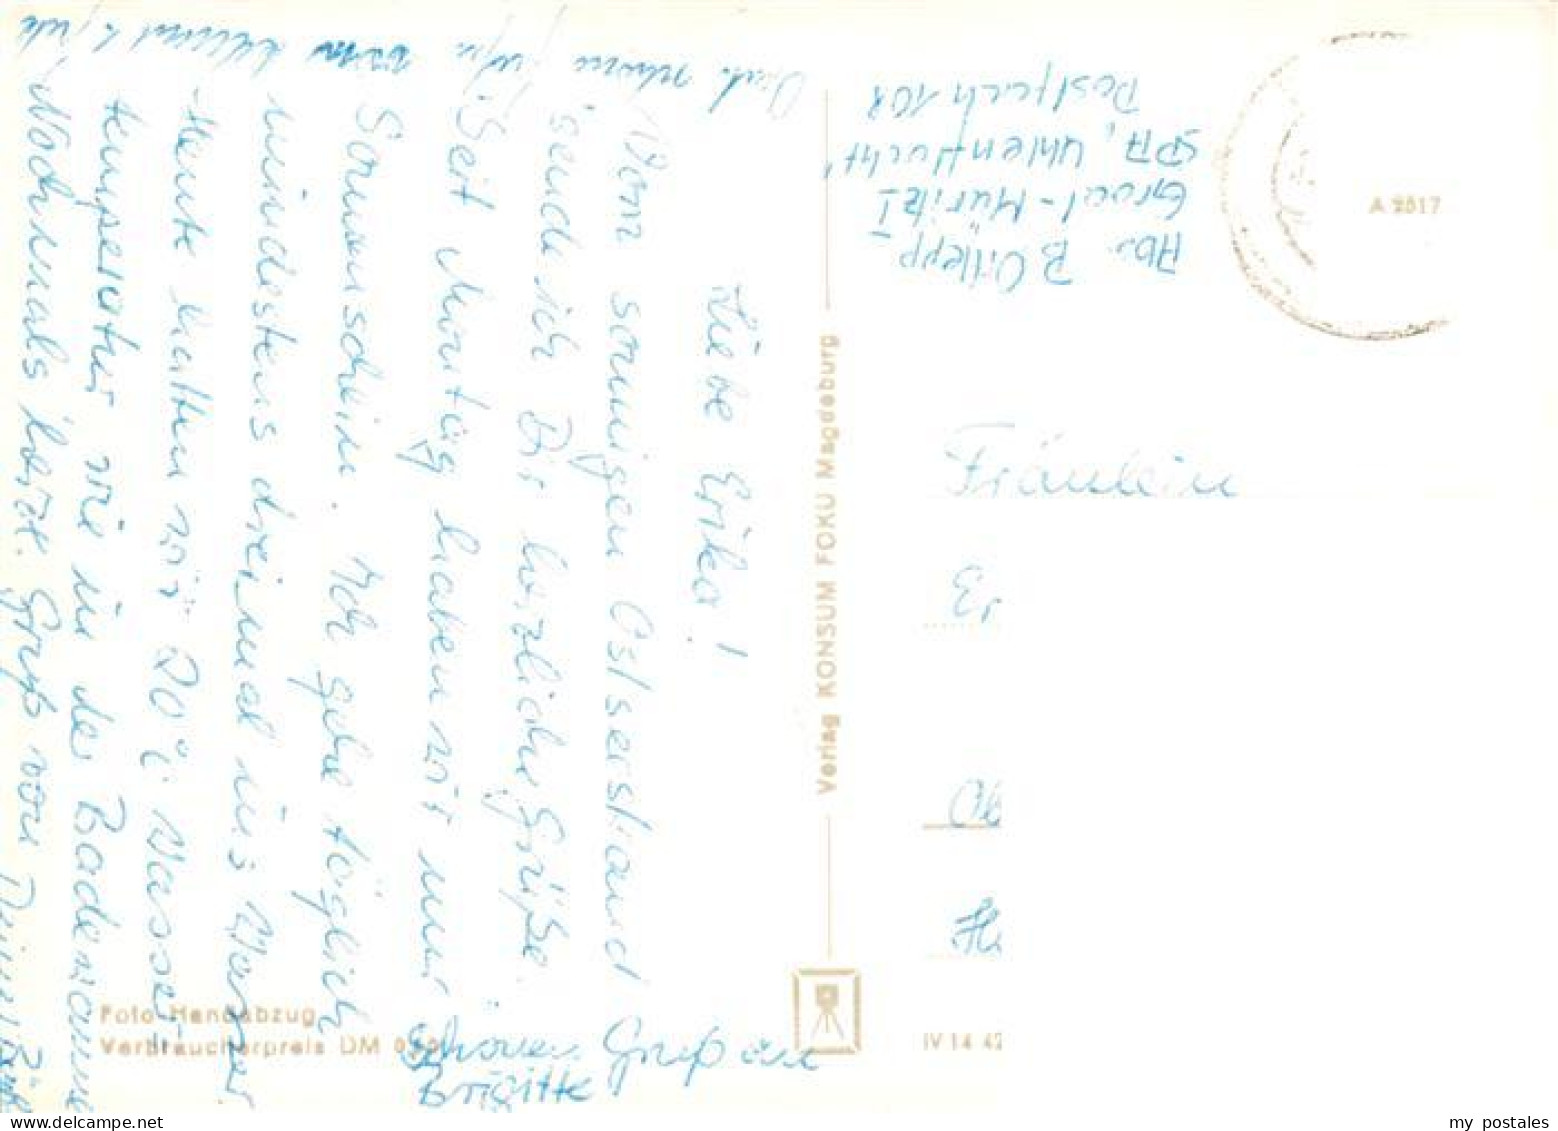 Liebe Erika!
Vom sonnigen Ostseestrand
sende ich Dir herzliche Grüße.
Seit Montag haben wir nur
Sonnenschein. Ich gehe täglich
mindestens dreimal ins Wasser.
Heute hatten wir 20° i. Wasser
temperatur wie in der Badewanne
Nochmals herzl. Gruß von Deiner
Gruß an
Brigitte
Abs. B. Ortlepp
Graal-Müritz I
SPH, Uhlenflucht'
Postfach 108
Verlag KONSUM FOKU Magdeburg
A 2517
Fräulein
Er
Ob
Foto-Handabzug
Verbraucherpreis DM
IV 14 42
my postales